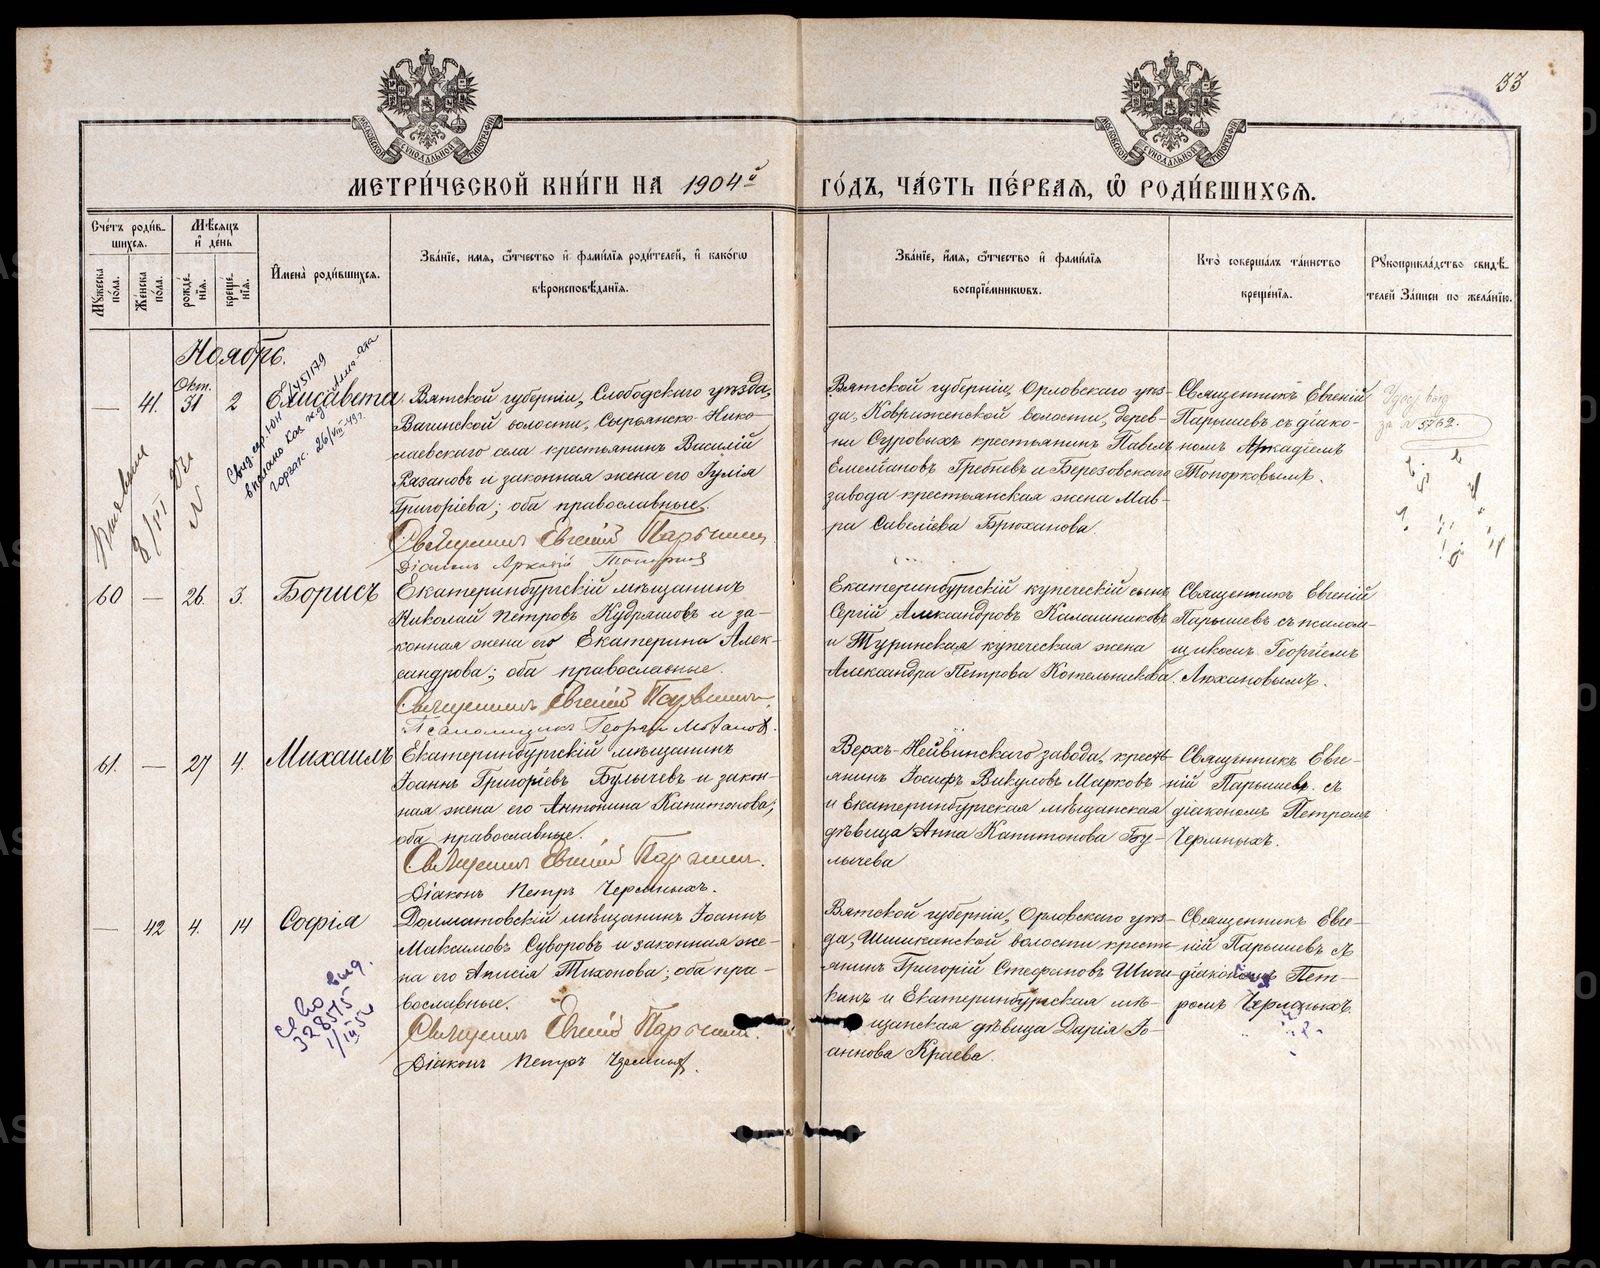 33
МОСКОВСКОЙ СѴНОДАЛЬНОЙ ТИПОГРАФІИ
МОСКОВСКОЙ СѴНОДАЛЬНОЙ ТИПОГРАФІИ
МЕТРИ́ЧЕСКОЙ КНИ́ГИ НА 1904й ГО́ДЪ, ЧА́СТЬ ПЕ́РВАѦ, Ѡ҆ РОДИ́ВШИХСѦ.
Сче́тъ роди́в-
шихсѧ.
Мꙋ́жеска по́ла.
Же́нска по́ла.
Мѣ́сѧцъ
и҆ де́нь
рожде́-
нїѧ.
креще́-
нїѧ.
И҆мена̀ роди́вшихсѧ.
Зва́нїе, и҆мѧ, ѻ҆́тчество и҆ фами́лїѧ роди́телей, и҆ како́гѡ
вѣроисповѣ́данїѧ.
Зва́нїе, и҆мѧ, ѻ҆́тчество и҆ фами́лїѧ
воспрїе́мниковъ.
Кто̀ соверша́лъ та́инство
креще́нїѧ.
Рꙋкоприкла́дство свидѣ́-
телей За́писи по жела́нїю.
Ноябрь.
— 41. Окт. 31 2 Елисавета
Вятской губерніи, Слободскаго уѣзда,
Вагинской волости, Сырьянско-Нико-
лаевскаго села крестьянинъ Василій
Рязановъ и законная жена его Іулія
Григоріева; оба православные.
Священникъ Евгеній Парышевъ
Діаконъ Аркадій Топорковъ
Вятской губерніи, Орловскаго уѣз-
да, Коврижской волости, дерев-
ни Суровыхъ крестьянинъ Павелъ
Емеліановъ Гребневъ и Березовскаго
завода крестьянская жена Мав-
ра Савеліева Брюханова.
Священникъ Евгеній
Парышевъ съ діако-
номъ Аркадіемъ
Топорковымъ.
№ 5762.
26/VIII-49г.
60 — 26. 3. Борисъ
Екатеринбургскій мѣщанинъ
Николай Петровъ Кудряшовъ и за-
конная жена его Екатерина Алек-
сандрова; оба православные.
Священникъ Евгеній Парышевъ.
Псаломщикъ Георгій
Екатеринбургскій купеческій сынъ
Сергій Александровъ Калашниковъ
и Туринская купеческая жена
Александра Петрова Котельникова.
Священникъ Евгеній
Парышевъ съ псалом-
щикомъ Георгіемъ
61. — 27 4. Михаилъ
Екатеринбургскій мѣщанинъ
Іоаннъ Григоріевъ Булычевъ и закон-
ная жена его Антонина Капитонова;
оба православные.
Священникъ Евгеній Парышевъ.
Діаконъ Петръ Чермныхъ.
Верхъ-Нейвинскаго завода, кресть-
янинъ Іосифъ Викуловъ Марковъ
и Екатеринбургская мѣщанская
дѣвица Анна Капитонова Бу-
лычева
Священникъ Евге-
ній Парышевъ съ
діакономъ Петромъ
Чермныхъ.
— 42 4. 14 Софія
Долматовскій мѣщанинъ Іоаннъ
Максимовъ Суворовъ и законная же-
на его Анисія Тихонова; оба пра-
вославные.
Священникъ Евгеній Парышевъ.
Діаконъ Петръ Чермныхъ.
Вятской губерніи, Орловскаго уѣз-
да, Шишканской волости кресть-
янинъ Григорій Стефановъ Шиш-
кинъ и Екатеринбургская мѣ-
щанская дѣвица Дарія Іо-
аннова Краева.
Священникъ Евге-
ній Парышевъ съ
діакономъ Пет-
ромъ Чермныхъ.
св во выд.
328575
1/III 5